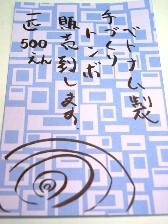 ベトナム製
手づくり
トンボ
販売到します。
一匹
500
えん